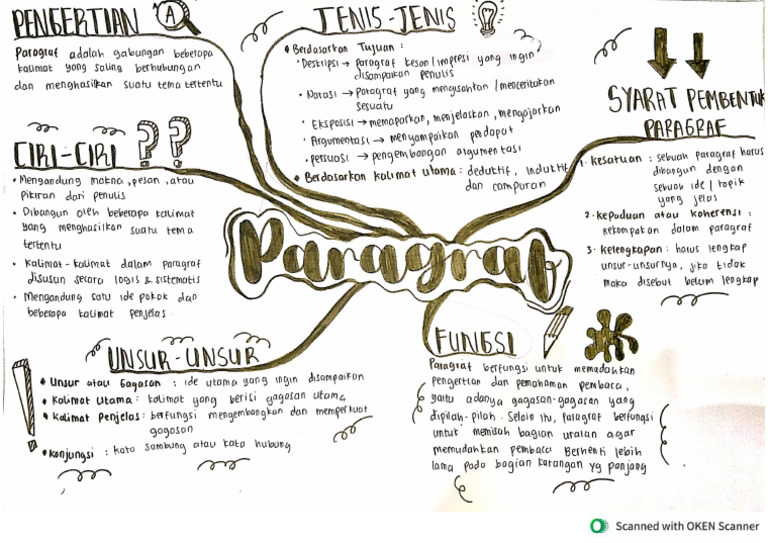 PENGERTIAN
A
Paragraf adalah gabungan beberapa
kalimat yang saling berhubungan
dan menghasilkan suatu tema tertentu
CIRI-CIRI ??
• Mengandung makna, pesan, atau
pikiran dari penulis
• Dibangun oleh beberapa kalimat
yang menghasilkan suatu tema
tertentu
• Kalimat-kalimat dalam paragraf
disusun secara logis & sistematis
• Mengandung satu ide pokok dan
beberapa kalimat penjelas
JENIS-JENIS
• Berdasarkan Tujuan :
• Deskripsi → paragraf kesan/impresi yang ingin
disampaikan penulis
• Narasi → paragraf yang mengisahkan/menceritakan
sesuatu
• Eksposisi → memaparkan, menjelaskan, mengajarkan
• Argumentasi → menyampaikan pendapat
• persuasi → pengembangan argumentasi
• Berdasarkan kalimat utama : deduktif, induktif
dan campuran
SYARAT PEMBENTUK
PARAGRAF
1. kesatuan : sebuah paragraf harus
dibangun dengan
sebuah ide/topik
yang jelas
2. kepaduan atau koherensi :
kekompakan dalam paragraf
3. kelengkapan : harus lengkap
unsur-unsurnya, jika tidak
maka disebut belum lengkap
Paragraf
UNSUR-UNSUR
!
• Unsur atau Gagasan : ide utama yang ingin disampaikan
• Kalimat Utama : kalimat yang berisi gagasan utama
• Kalimat Penjelas : berfungsi mengembangkan dan memperkuat
gagasan
• Konjungsi : kata sambung atau kata hubung
FUNGSI
Paragraf berfungsi untuk memudahkan
pengertian dan pemahaman pembaca,
yaitu adanya gagasan-gagasan yang
dipilah-pilah. Selain itu, paragraf berfungsi
untuk memisah bagian uraian agar
memudahkan pembaca Berhenti lebih
lama pada bagian karangan yg panjang
Scanned with OKEN Scanner